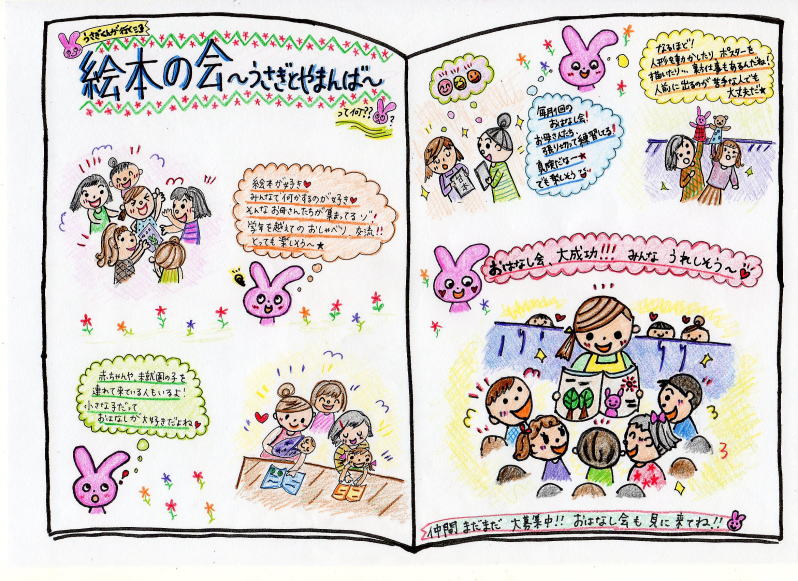 うさぎくんが行くこま
絵本の会〜うさぎとやまんば〜
って何??
絵本が好き♥
みんなで何かするのが好き♥
そんなお母さんたちが集まってるゾ
学年を越えてのおしゃべり、交流!!
とっても楽しそう〜★
赤ちゃんや、未就園の子を
連れて来ている人もいるよ!
小さな子だって
おはなしが大好きだよね♥
毎月1回の
おはなし会!
お母さんたち
張り切って練習してる!
真剣だなー★
でも楽しそう
なるほど!
人形を動かしたり、ポスターを
描いたり…裏方仕事もあるんだね!
人前に出るのが苦手な人でも
大丈夫だ★
絵本
おはなし会、大成功!!! みんな うれしそう〜
仲間 まだまだ 大募集中!! おはなし会も 見に来てね!!